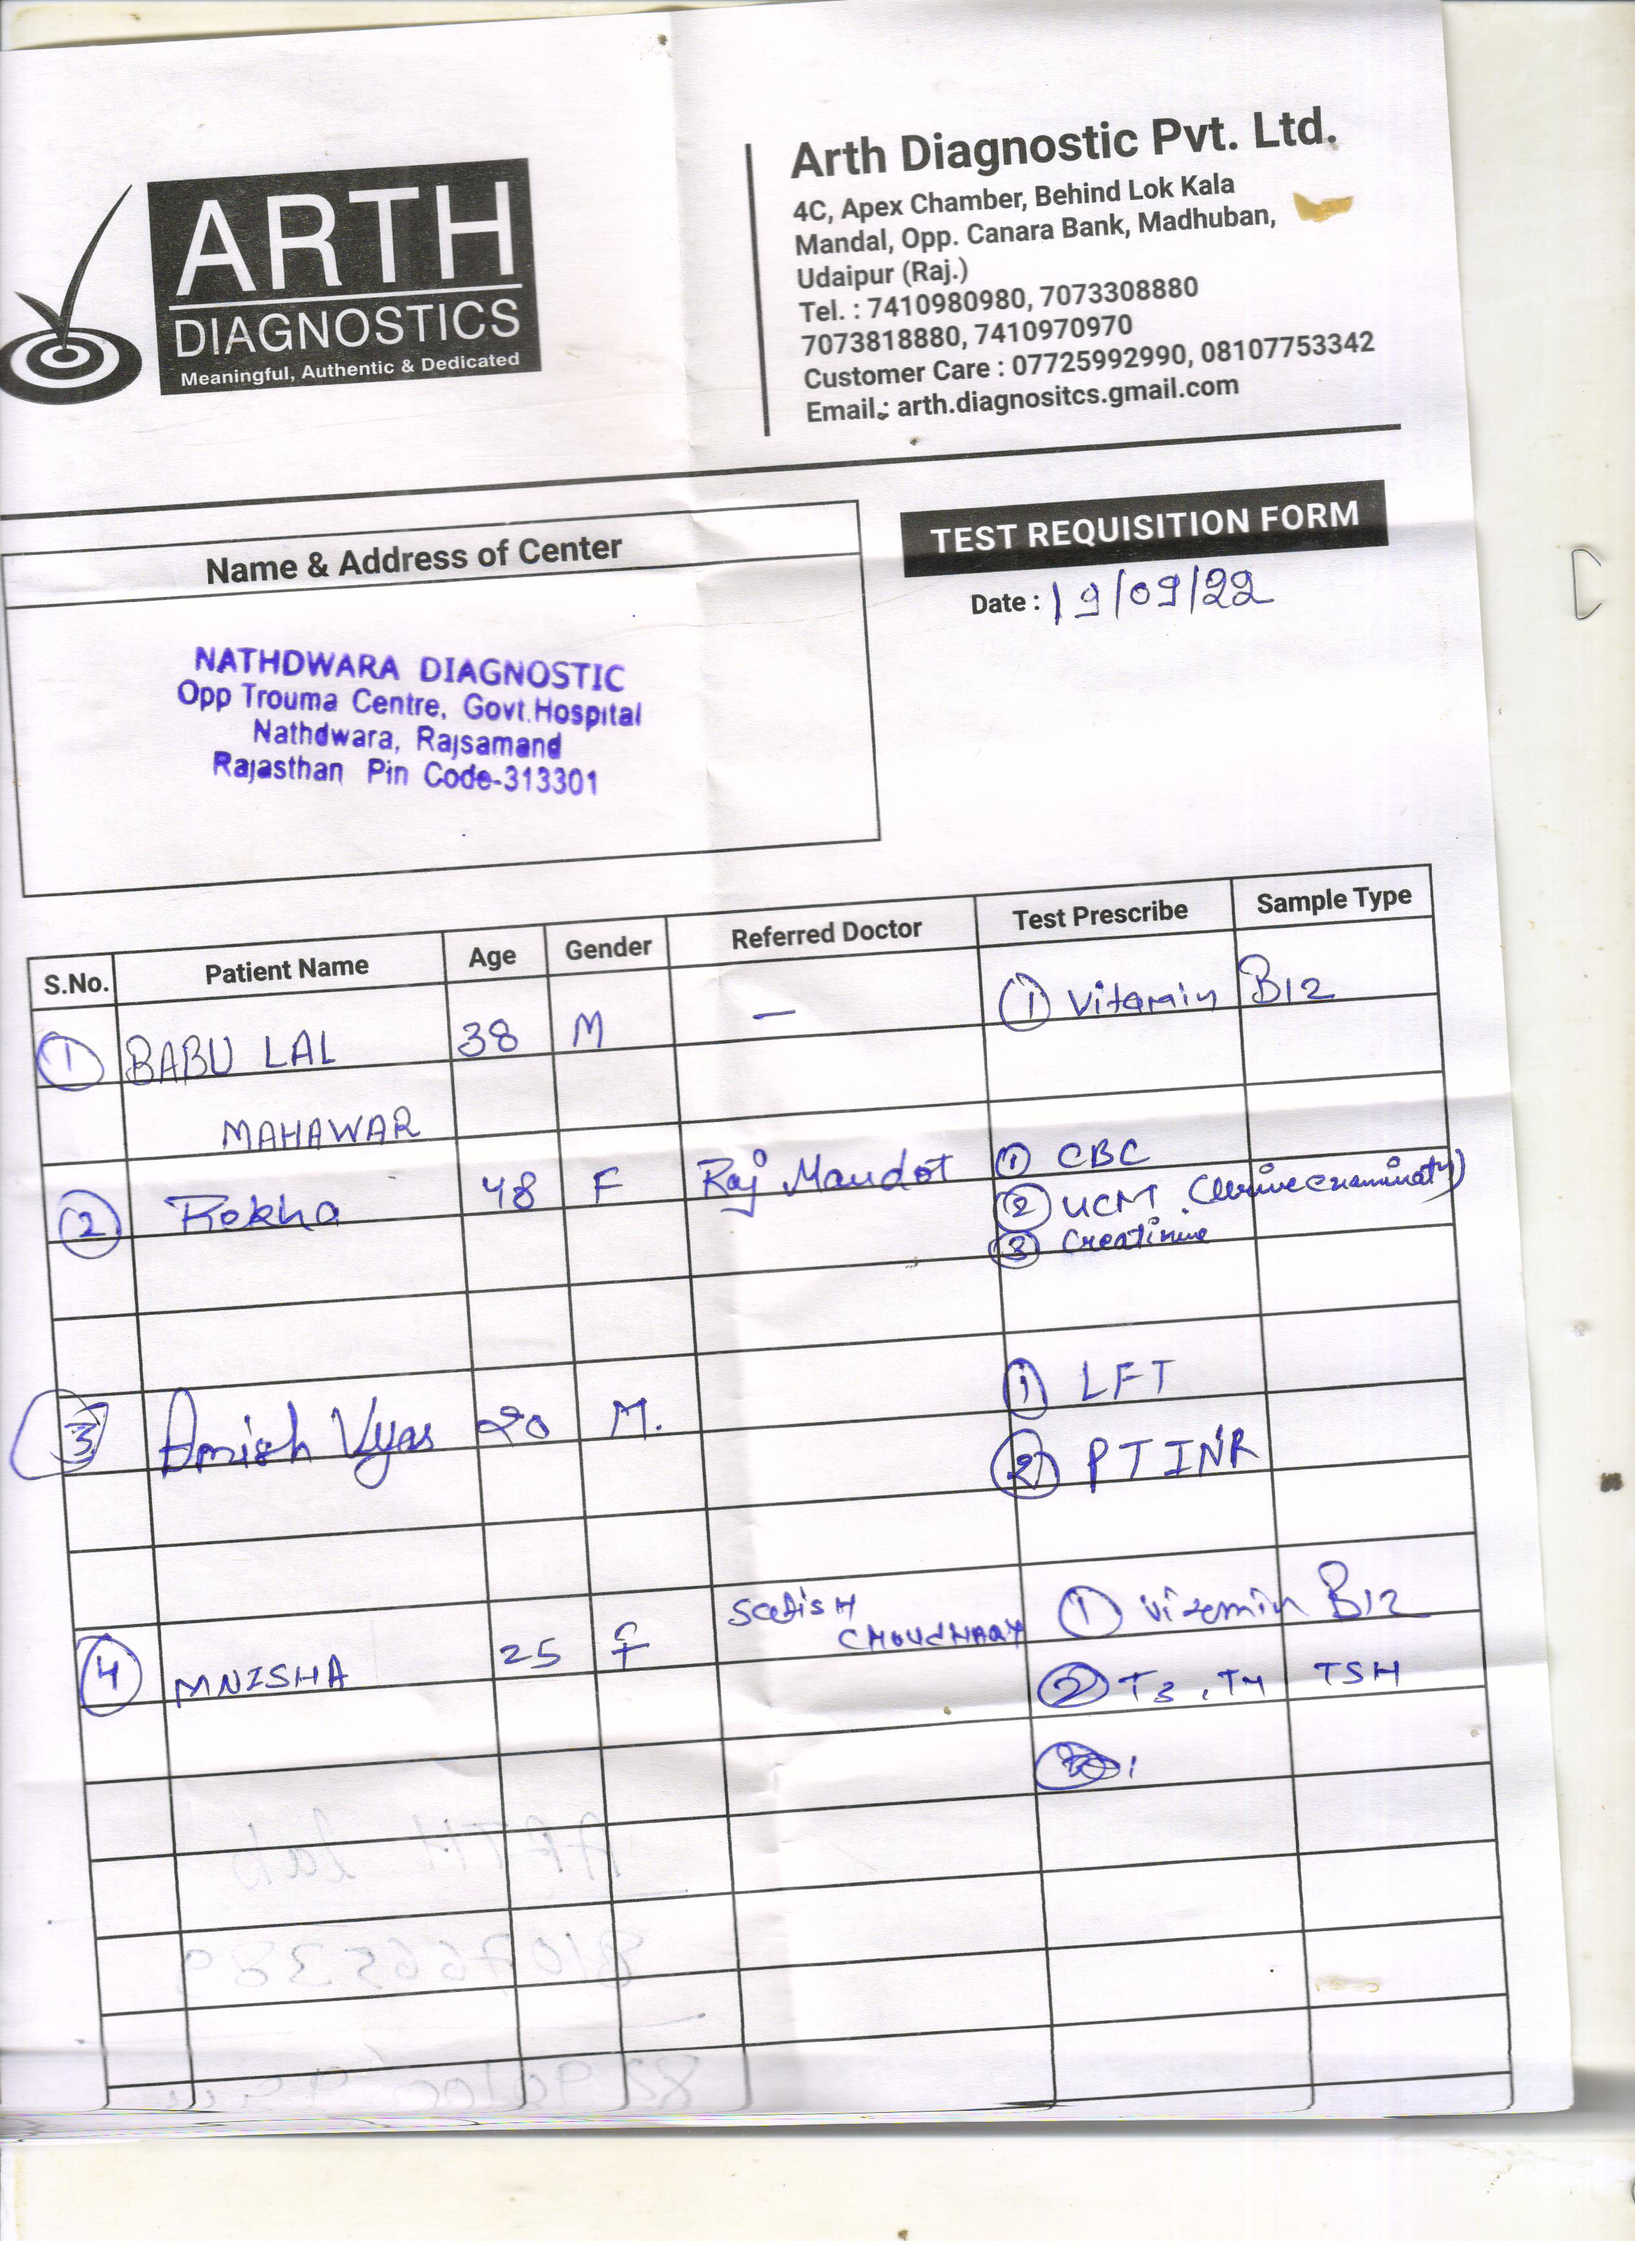 ARTH
DIAGNOSTICS
Meaningful, Authentic & Dedicated
Arth Diagnostic Pvt. Ltd.
4C, Apex Chamber, Behind Lok Kala
Mandal, Opp. Canara Bank, Madhuban,
Udaipur (Raj.)
Tel. : 7410980980, 7073308880
7073818880, 7410970970
Customer Care : 07725992990, 08107753342
Email.: arth.diagnositcs.gmail.com
Name & Address of Center
NATHDWARA DIAGNOSTIC
Opp Trouma Centre, Govt.Hospital
Nathdwara, Rajsamand
Rajasthan Pin Code-313301
TEST REQUISITION FORM
Date : 19/09/22
S.No. Patient Name Age Gender Referred Doctor Test Prescribe Sample Type
1 BABU LAL 38 M – 1 Vitamin B12
MAHAWAR
2 Rekha 48 F Raj Mandot 1 CBC
2 UCM (Urine examinat)
3 Creatinine
1 LFT
3 Amish Vyas 20 M.
2 PT INR
4 MNISHA 25 F Satish
CHOUDHARY
1 Vitamin B12
2 T3, T4 TSH
ARTH Lab
8107665389